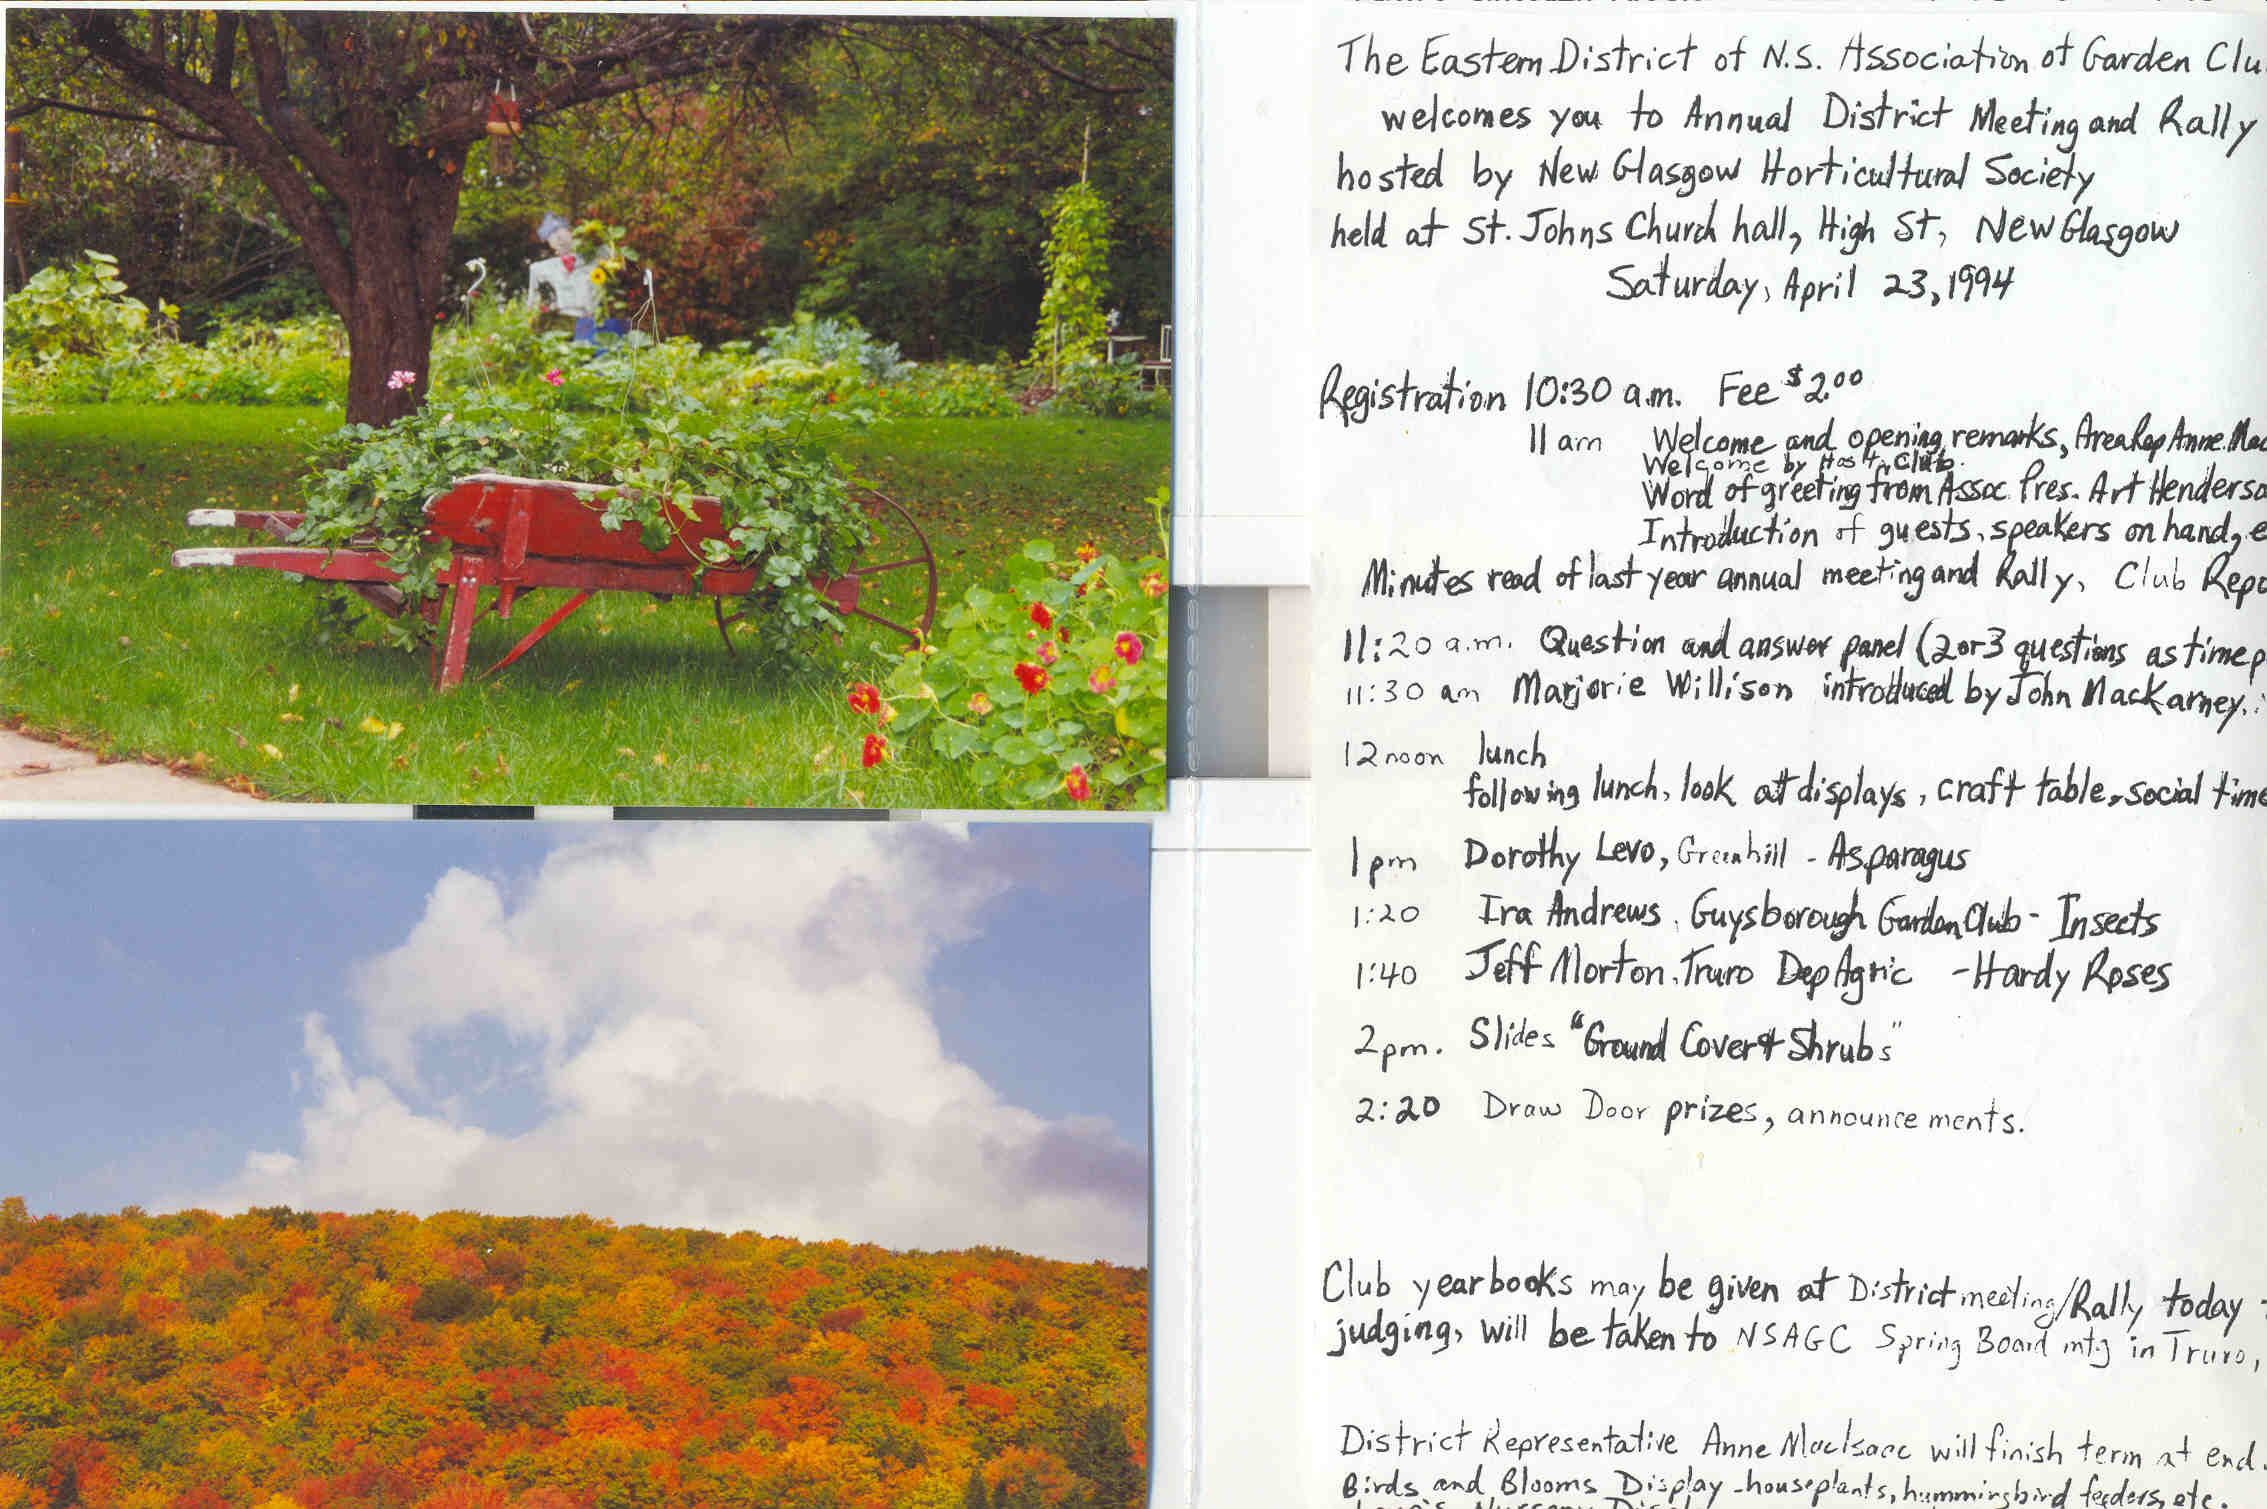 The Eastern District of N.S. Association of Garden Clu
welcomes you to Annual District Meeting and Rally
hosted by New Glasgow Horticultural Society
held at St. Johns Church hall, High St, New Glasgow
Saturday, April 23, 1994
Registration 10:30 a.m. Fee $2.00
11 am Welcome and opening remarks, Area Rep Anne Mac
Welcome by Host Club.
Word of greeting from Assoc Pres. Art Henderso
Introduction of guests, speakers on hand, e
Minutes read of last year annual meeting and Rally, Club Repo
11:20 a.m. Question and answer panel (2 or 3 questions as time p
11:30 am Marjorie Willison introduced by John MacKarney.
12 noon lunch
following lunch, look at displays, craft table, social time
1 pm Dorothy Levo, Greenhill - Asparagus
1:20 Ira Andrews, Guysborough Garden Club - Insects
1:40 Jeff Morton, Truro Dep Agric - Hardy Roses
2 pm. Slides "Ground Cover & Shrubs"
2:20 Draw Door prizes, announcements.
Club yearbooks may be given at District meeting/Rally today
judging, will be taken to NSAGC Spring Board mtg in Truro,
District Representative Anne MacIsaac will finish term at end.
Birds and Blooms Display - houseplants, hummingbird feeders, etc